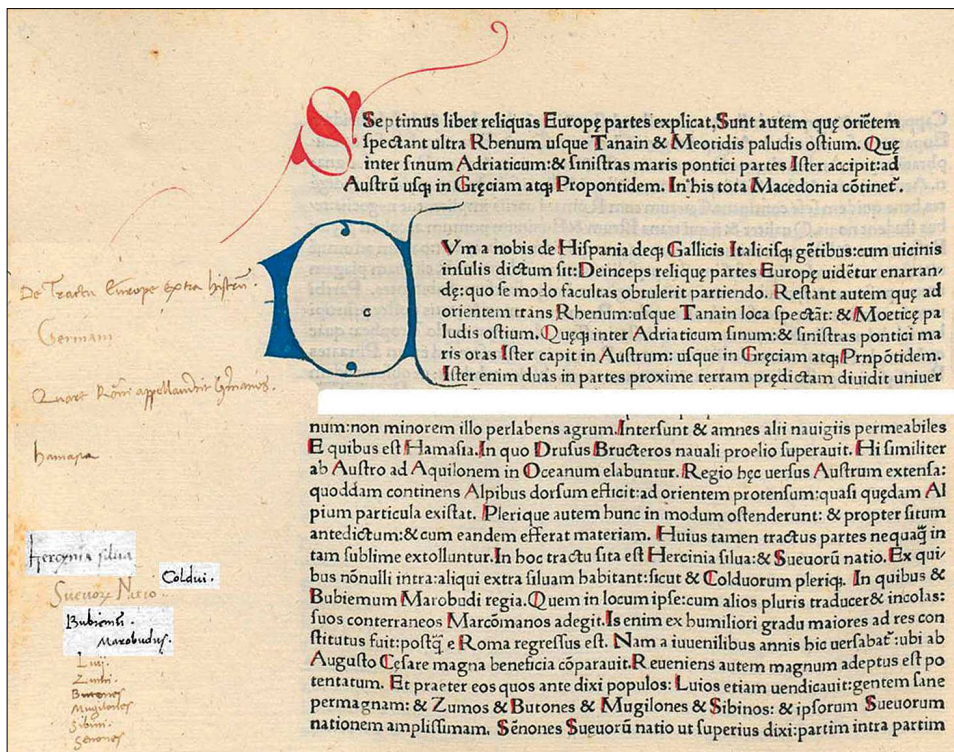 Septimus liber reliquas Europę partes explicat, Sunt autem quę oriētem
spectant ultra Rhenum usque Tanain & Meotidis paludis ostium. Quę
inter sinum Adriaticum: & sinistras maris pontici partes Ister accipit: ad
Austrū usq; in Gręciam atq; Propontidem. In his tota Macedonia cōtinet.
CVm a nobis de Hispania deq; Gallicis Italicisq; gētibus: cum uicinis
insulis dictum sit: Deinceps relique partes Europę uidētur enarran-
dę: quo se modo facultas obtulerit partiendo. Restant autem quę ad
orientem trans Rhenum: usque Tanain loca spectāt: & Moeticę pa
ludis ostium. Quęq; inter Adriaticum sinum: & sinistras pontici ma
ris oras Ister capit in Austrum: usque in Gręciam atq; Prnpōtidem.
Ister enim duas in partes proxime terram prędictam diuidit uniuer
num: non minorem illo perlabens agrum. Intersunt & amnes alii nauigiis permeabiles
E quibus est Hamasia. In quo Drusus Bructeros nauali proelio superauit. Hi similiter
ab Austro ad Aquilonem in Oceanum elabuntur. Regio hęc uersus Austrum extensa:
quoddam continens Alpibus dorsum efficit: ad orientem protensum: quasi quędam Al
pium particula existat. Plerique autem hunc in modum ostenderunt: & propter situm
antedictum: & cum eandem efferat materiam. Huius tamen tractus partes nequaq̄ in
tam sublime extolluntur. In hoc tractu sita est Hercinia silua: & Sueuorū natio. Ex qui-
bus nōnulli intra: aliqui extra siluam habitant: sicut & Colduorum pleriq;. In quibus &
Bubiemum Marobudi regia. Quem in locum ipse: cum alios pluris traducer& incolas:
suos conterraneos Marcōmanos adegit. Is enim ex humiliori gradu maiores ad res con
stitutus fuit: postq̄ e Roma regressus est. Nam a iuuenilibus annis hic uersabat: ubi ab
Augusto Cęsare magna beneficia cōparauit. Reueniens autem magnum adeptus est po
tentatum. Et praeter eos quos ante dixi populos: Luios etiam uendicauit: gentem sane
permagnam: & Zumos & Butones & Mugilones & Sibinos: & ipsorum Sueuorum
nationem amplissimam. Sēnones Sueuorū natio ut superius dixi: partim intra partim
De Tractu Europe extra histrū.
Germani
Quare Romi appellaverit Germanos.
hamasia
hercynia silua
Coldui.
Sueuorū Natio.
Bubiemū.
Marobudus.
Luij.
Zumi.
Butones
Mugilones
Sibini.
Senones